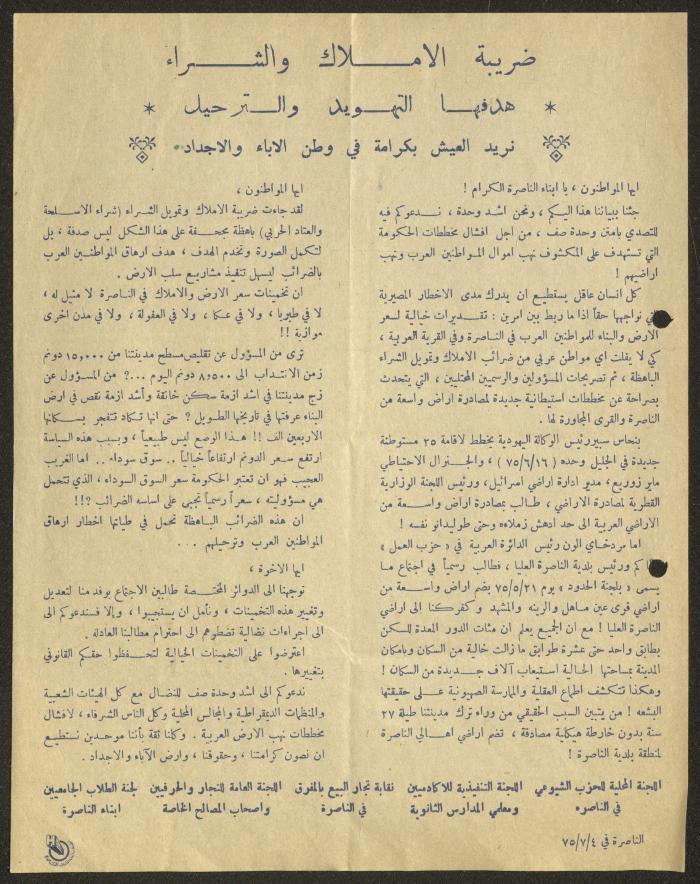 ضريبة الاملاك والشراء
* هدفها التهويد والترحيل *
نريد العيش بكرامة في وطن الاباء والاجداد
ايها المواطنون ، يا ابناء الناصرة الكرام !
جئنا ببياننا هذا اليكم ، ونحن اشد وحدة ، ندعوكم فيه
للتصدي بامتن وحدة صف ، من اجل افشال مخططات الحكومة
التي تستهدف على المكشوف نهب اموال المواطنين العرب ونهب
اراضيهم !
كل انسان عاقل يستطيع ان يدرك مدى الاخطار المصيرية
نواجهها حقاً اذا ما ربط بين امرين : تقديرات خيالية لسعر
الارض والبناء للمواطنين العرب في الناصرة وفي القرية العربية ،
كي لا يفلت اي مواطن عربي من ضرائب الاملاك وتمويل الشراء
الباهظة ، ثم تصريحات المسؤولين والرسميين المحليين ، التي يتحدث
بصراحة عن مخططات استيطانية جديدة لمصادرة اراض واسعة من
الناصرة والقرى المجاورة لها .
بنحاس سبير رئيس الوكالة اليهودية يخطط لاقامة ٢٥ مستوطنة
جديدة في الجليل وحده (٧٥/٦/١٦) ، والجنرال الاحتياطي
ماير زوريع ، مدير ادارة اراضي اسرائيل ، ورئيس اللجنة الوزارية
القطرية لمصادرة الاراضي ، طالب بمصادرة اراض واسعة من
الاراضي العربية الى حد ادهش زملاءه وحتى طوليدانو نفسه !
اما مردخاي الون رئيس الدائرة العربية في « حزب العمل »
كم ورئيس بلدية الناصرة العليا ، فطالب رسمياً في اجتماع ما
يسمى « بلجنة الحدود » يوم ٧٥/٥/٢١ بضم اراض واسعة من
اراضي قرى عين ماهل والرينه والمشهد وكفركنا الى اراضي
الناصرة العليا ! مع ان الجميع يعلم ان مئات الدور المعدة للسكن
بطابق واحد حتى عشرة طوابق ما زالت خالية من السكان وبامكان
المدينة بمساحتها الحالية استيعاب آلاف جديدة من السكان !
وهكذا تتكشف اطماع العقلية والممارسة الصهيونية على حقيقتها
البشعه ! من يتبين السبب الحقيقي من وراء ترك مدينتنا طيلة ٢٧
سنة بدون خارطة هيكلية مصادقة ، تضم اراضي اهالي الناصرة
لمنطقة بلدية الناصرة !
ايها المواطنون ،
لقد جاءت ضريبة الاملاك وتمويل الشراء (شراء الاسلحة
والعتاد الحربي) باهظة مجحفة على هذا الشكل ليس صدفة ، بل
لتكمل الصورة وتخدم الهدف ، هدف ارهاق المواطنين العرب
بالضرائب ليسهل تنفيذ مشاريع سلب الارض .
ان تخمينات سعر الارض والاملاك في الناصرة لا مثيل له ،
لا في طبريا ، ولا في عكا ، ولا في العفولة ، ولا في مدن اخرى
موازية !!
ترى من المسؤول عن تقليص مسطح مدينتنا من ١٥,٠٠٠ دونم
زمن الانتداب الى ٨,٥٠٠ دونم اليوم ...؟ من المسؤول عن
زج مدينتنا في اشد ازمة سكن خانقة وأشد ازمة نقص في ارض
البناء عرفتها في تاريخها الطويل ؟ حتى انها تكاد تتفجر بسكانها
الاربعين الف !! هذا الوضع ليس طبيعياً ، وبسبب هذه السياسة
ارتفع سعر الدونم ارتفاعاً خيالياً .. سوق سوداء .. اما الغريب
العجيب فهو ان تعتبر الحكومة سعر السوق السوداء ، الذي تتحمل
هي مسؤوليته ، سعراً رسمياً تجبى على اساسه الضرائب ؟!!
ان هذه الضرائب الباهظة تحمل في طياتها اخطار ارهاق
المواطنين العرب وترحيلهم ...
ايها الاخوة ،
توجهنا الى الدوائر المختصة طالبين الاجتماع بوفد منا لتعديل
وتغيير هذه التخمينات ، ونأمل ان يستجيبوا ، والا فسندعوكم الى
الى اجراءات نضالية تضطرهم الى احترام مطالبنا العادله .
اعترضوا على التخمينات الخيالية لتحفظوا حقكم القانوني
بتغييرها .
ندعوكم الى اشد وحدة صف للنضال مع كل الهيئات الشعبية
والمنظمات الديمقراطية والمجالس المحلية وكل الناس الشرفاء ، لافشال
مخططات نهب الارض العربية . وكلنا ثقة بأننا موحدين نستطيع
ان نصون كرامتنا ، وحقوقنا ، وارض الآباء والاجداد .
اللجنة المحلية للحزب الشيوعي
في الناصره
اللجنة التنفيذية للاكادميين
ومعلمي المدارس الثانوية
نقابة تجار البيع بالمفرق
في الناصرة
اللجنة العامة للتجار والحرفيين
واصحاب المصالح الخاصة
لجنة الطلاب الجامعيين
ابناء الناصرة
الناصرة في ٧٥/٧/٤